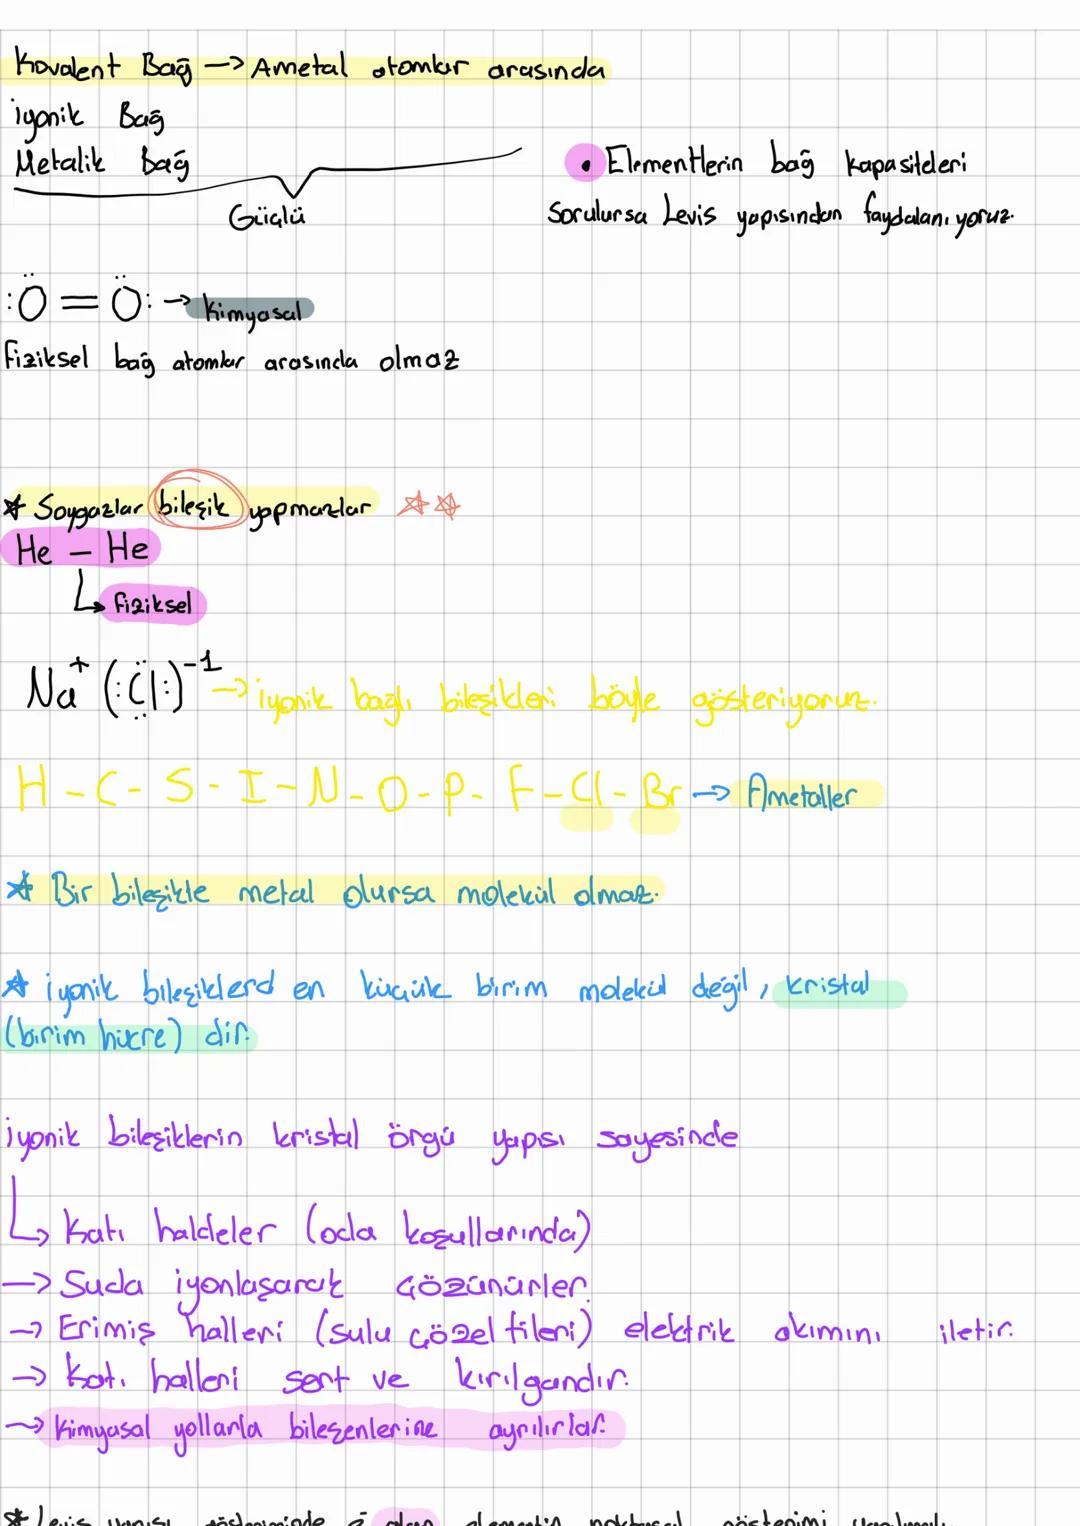 Kovalent Bağ → Ametal atomlar arasında
iyonik Bağ
Metalik Bağ
Güçlü
• Elementlerin bağ kapasiteleri
Sorulursa Levis yapısından faydalanıyoruz.
:Ö=Ö: → Kimyasal
Fiziksel bağ atomlar arasında olmaz
* Soygazlar bileşik yapmazlar
He - He
Fiziksel
Na⁺ (:Cl:)⁻¹ → iyonik bağlı bileşikleri böyle gösteriyoruz.
H-C-S-I-N-O-P-F-Cl-Br → Ametaller
* Bir bileşikte metal olursa molekül olmaz.
* iyonik bileşiklerd en küçük birim molekül değil, kristal
(birim hücre) dir.
iyonik bileşiklerin kristal örgü yapısı sayesinde
→ Katı haldeler (oda koşullarında)
→ Suda iyonlaşarak çözünürler.
→ Erimiş halleri (sulu çözeltileri) elektrik akımını iletir.
→ Katı halleri sert ve kırılgandır.
→ Kimyasal yollarla bileşenlerine ayrılırlar.
* Levis yapısı gösteriminde olan elementin noktasal gösterimi